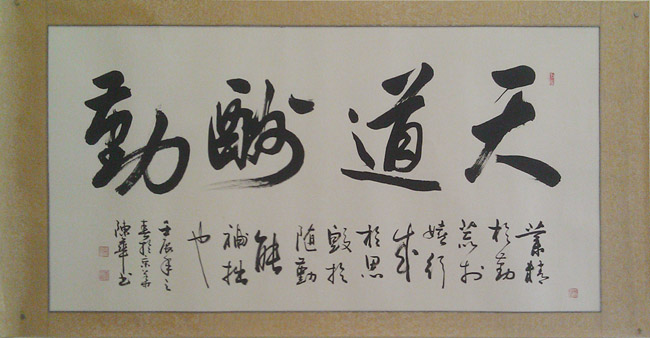 天道酬勤
業精
於勤
荒於
嬉行
成
於思
毀於
随勤
能
補拙
也
壬辰年之
春於京華
陳華书